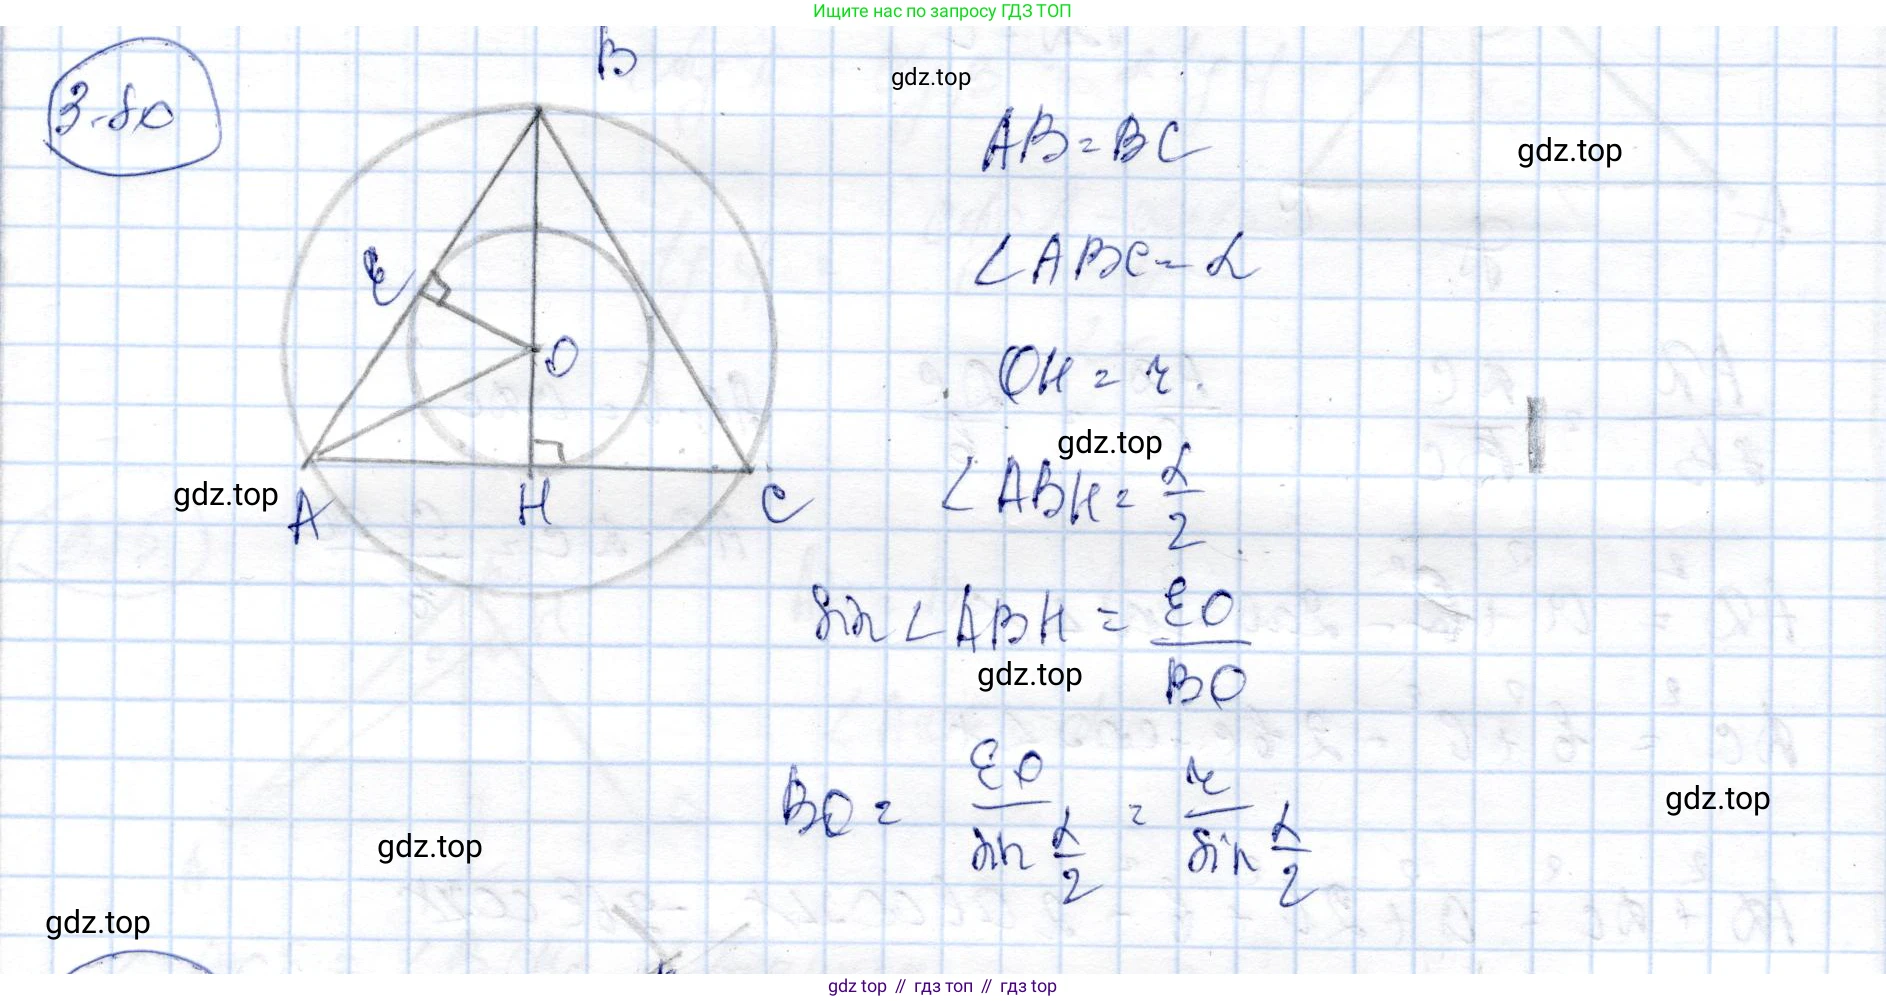 Ищите нас по запросу ГДЗ ТОП
3-80
B
gdz.top
AB = BC
gdz.top
∠ABC = α
E
O
OH = r
gdz.top
∠ABH = α/2
gdz.top
A
H
C
sin∠ABH = EO/BO
gdz.top
BO = EO/sin α/2 = r/sin α/2
gdz.top
gdz.top
gdz.top
gdz top // гдз топ // гдз top